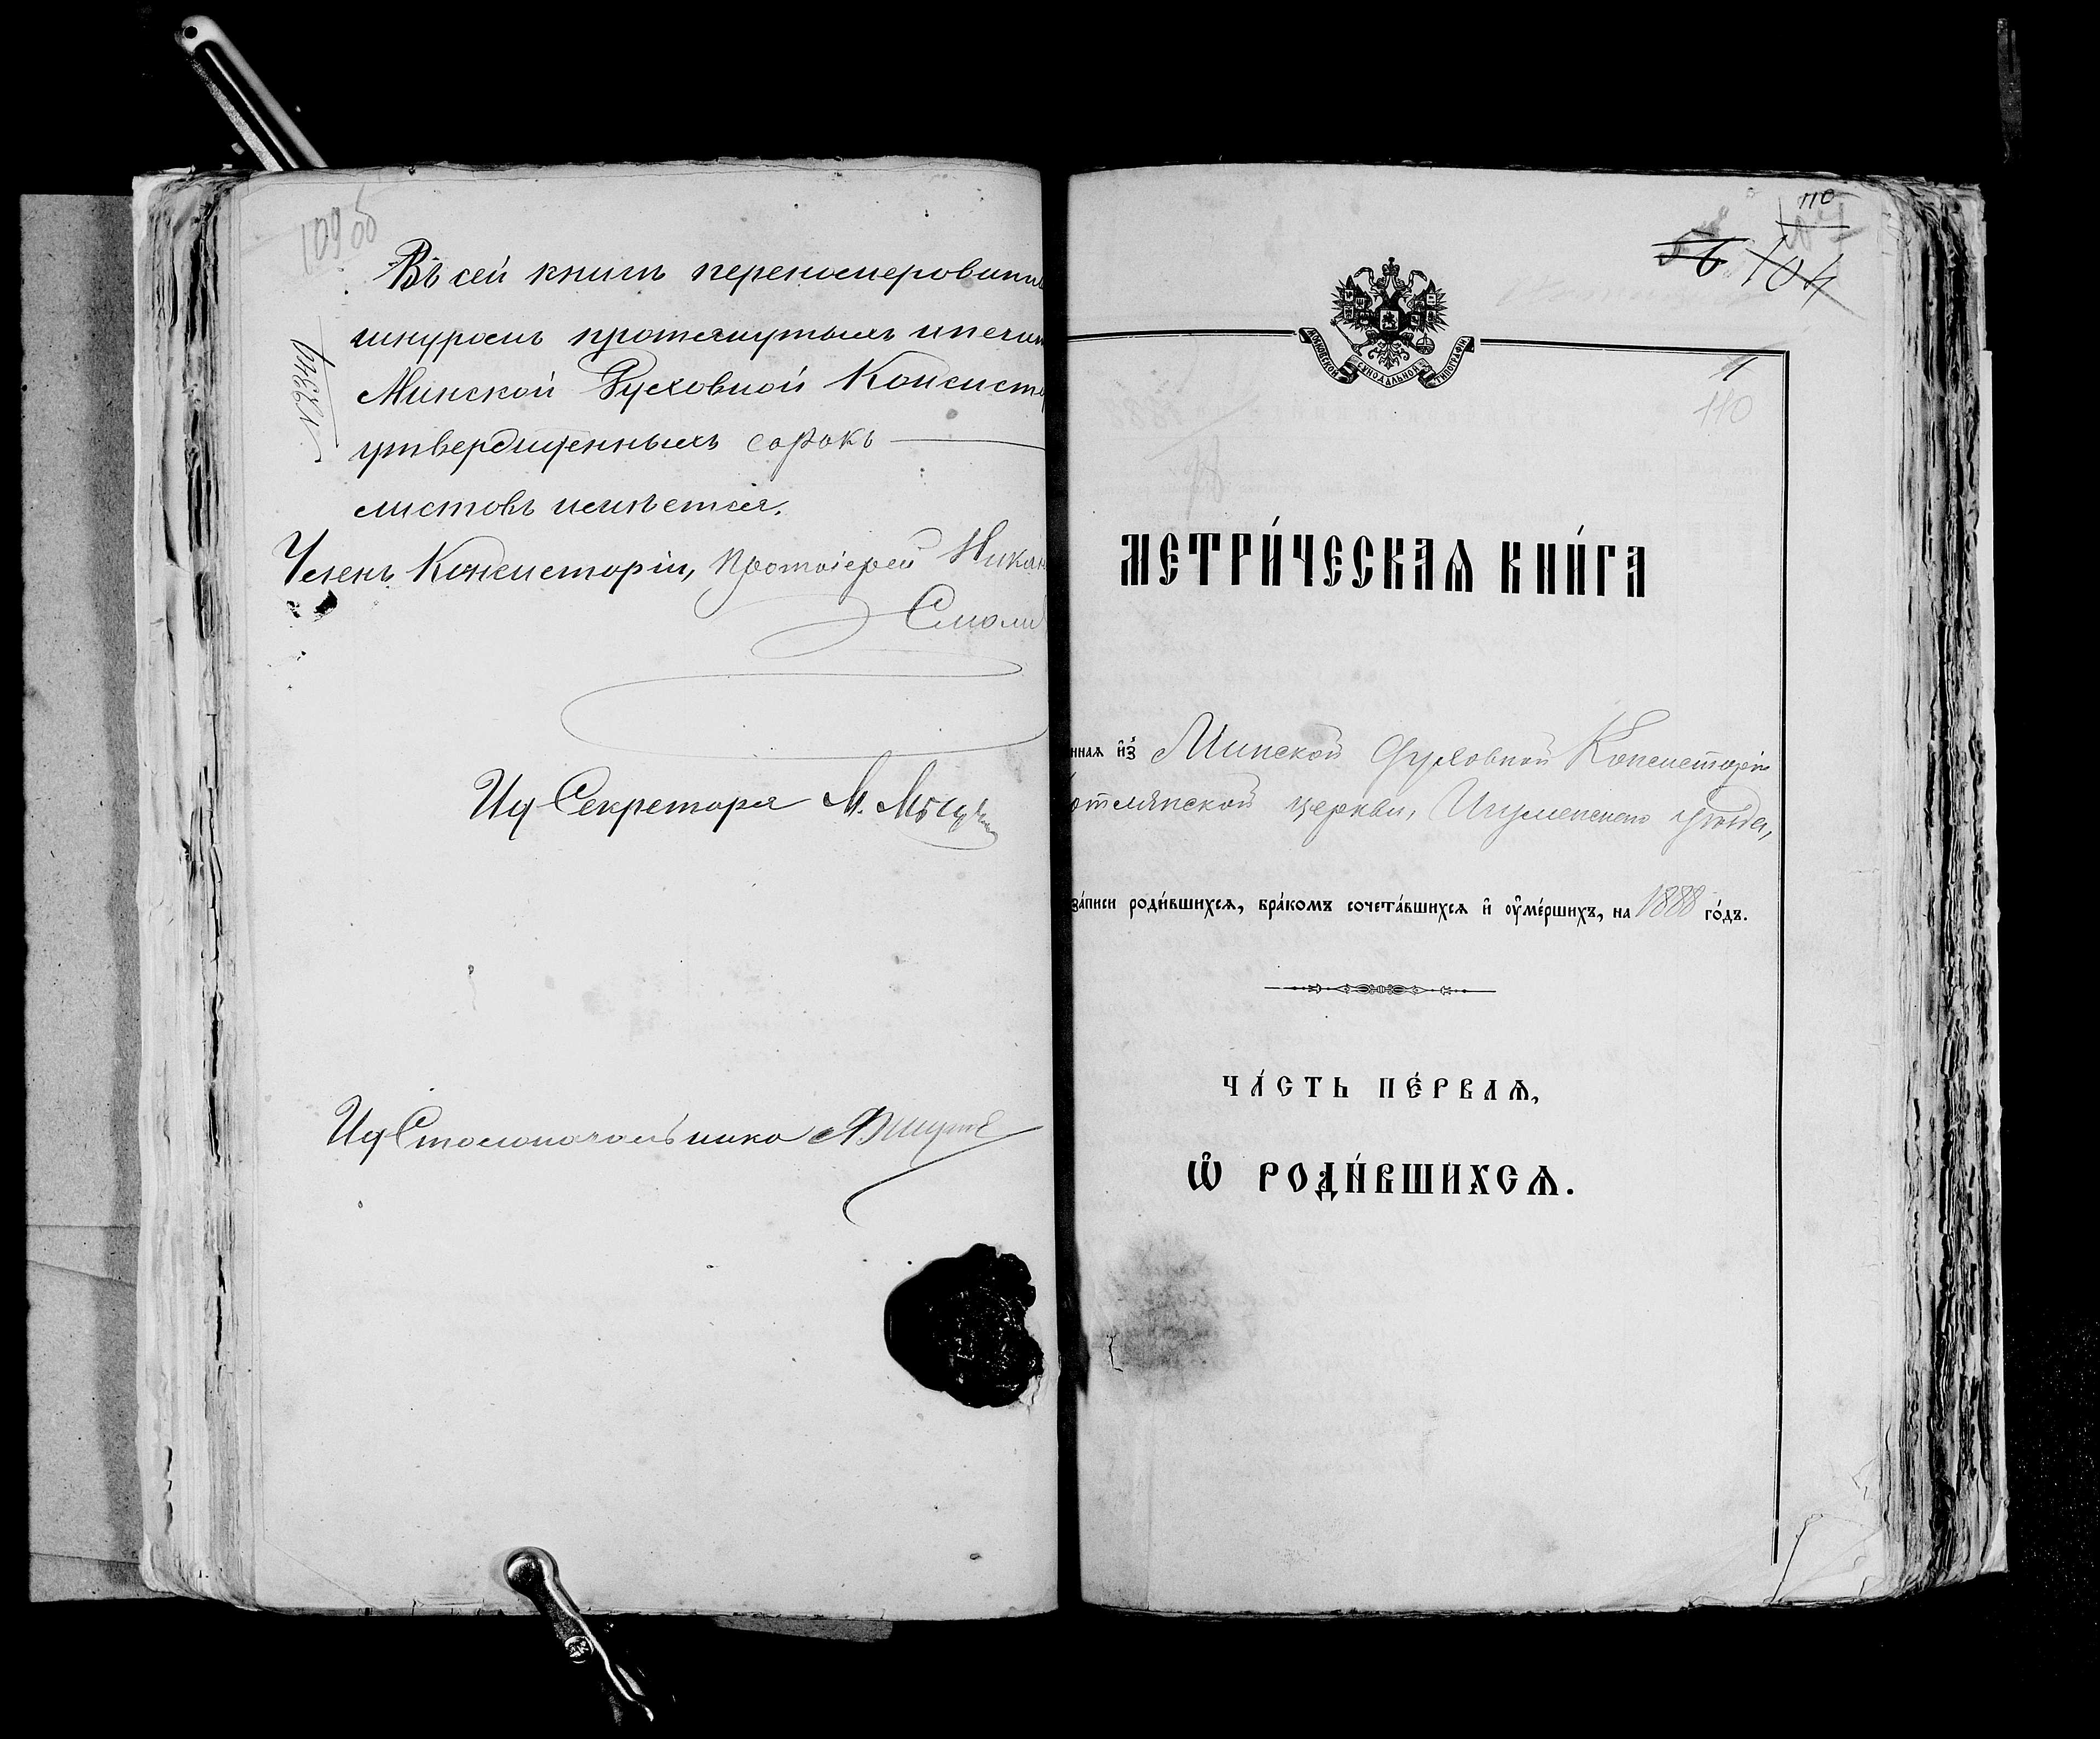 109об
Въ сей книгѣ перенумерованны
шнуромъ протянутыхъ и печат
Минской Духовной Консисто
утвержденныхъ сорокъ
листовъ имѣется.
Членъ Консисторіи, Протоіерей Никан
Смоли
Ид Секретаря М.
Ид Столоначальника
110
56 104
МОСКОВСКОЙ СѴНОДАЛЬНОЙ ТИПОГРАФІИ
1
110
МЕТРИ́ЧЕСКАѦ КНИ́ГА
ннаѧ и҆з̾ Минской Духовной Консисторіи
отлянской церкви, Игуменскаго уѣзда,
за́писи роди́вшихсѧ, бра́комъ сочета́вшихсѧ и҆ ѹ҆ме́ршихъ, на 1888 го́дъ.
ЧА́СТЬ ПЕ́РВАѦ,
Ѽ РОДИ́ВШИХСѦ.